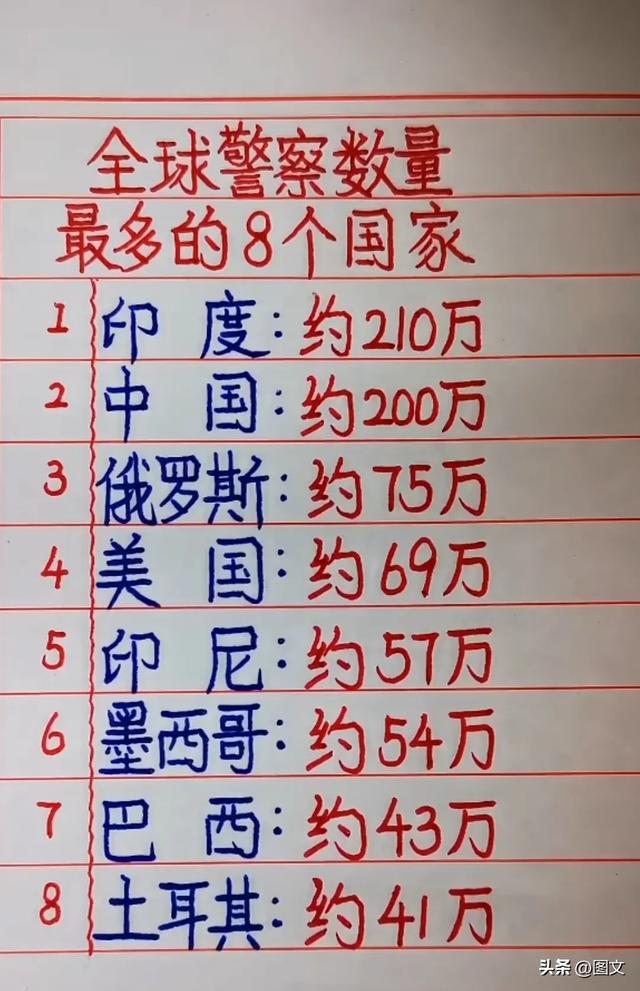 全球警察数量
最多的8个国家
1 印度：约210万
2 中国：约200万
3 俄罗斯：约75万
4 美国：约69万
5 印尼：约57万
6 墨西哥：约54万
7 巴西：约43万
8 土耳其：约41万
头条 @图文